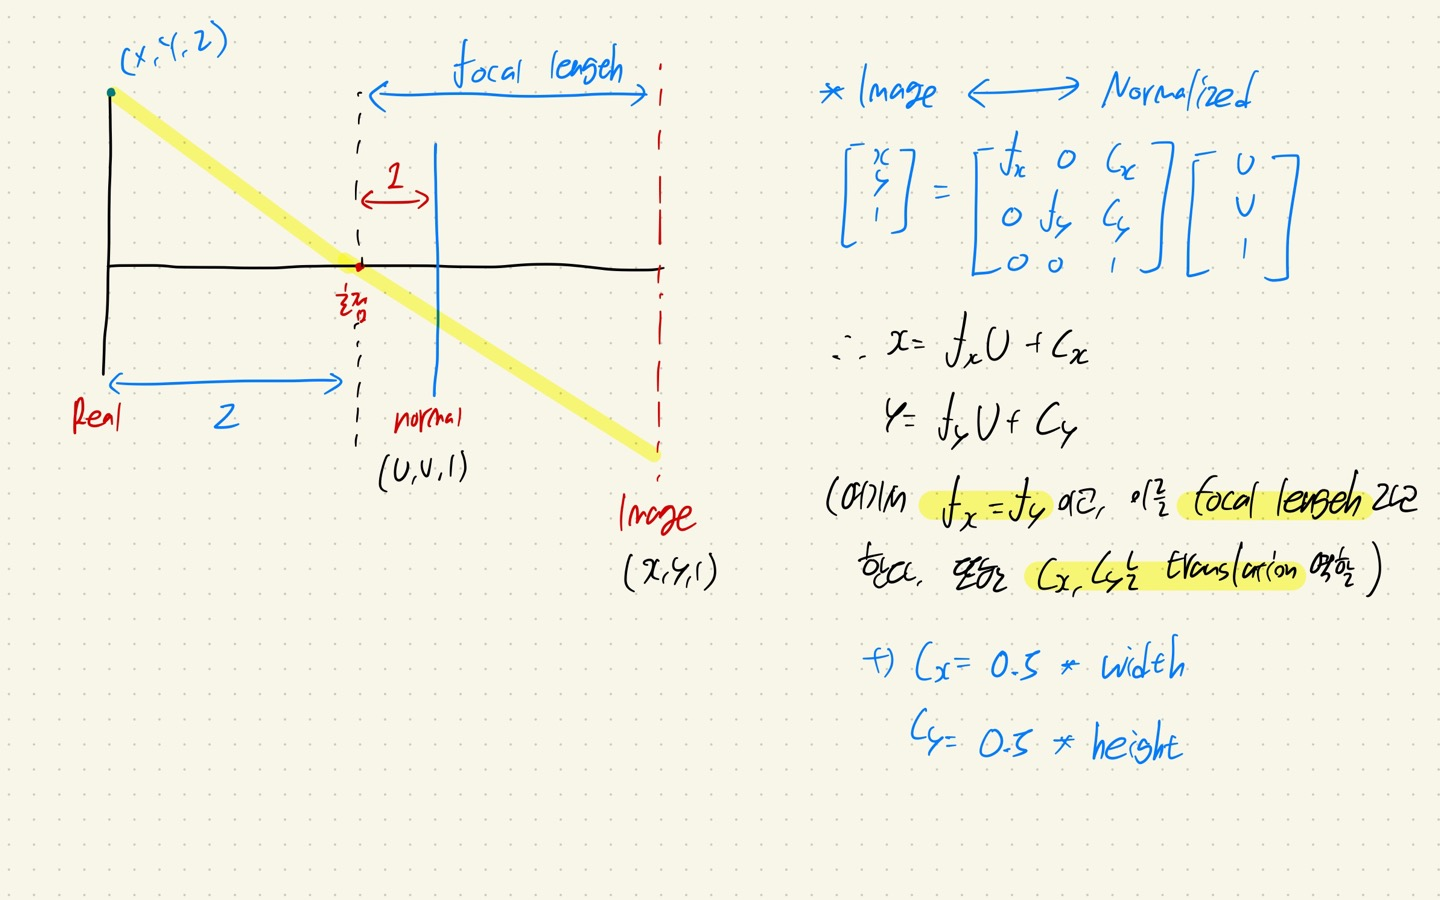 (X, Y, Z)
focal length
1
초점
Z
Real
normal
(u, v, 1)
Image
(x, y, 1)
* Image ↔ Normalized
[x y 1] = [fx 0 Cx
0 fy Cy
0 0 1] [u v 1]
∴ x = fx u + Cx
y = fy v + Cy
(여기서 fx = fy 이고, 이를 focal length 라고
한다. 또한 Cx, Cy는 translation 역할)
+) Cx = 0.5 * width
Cy = 0.5 * height